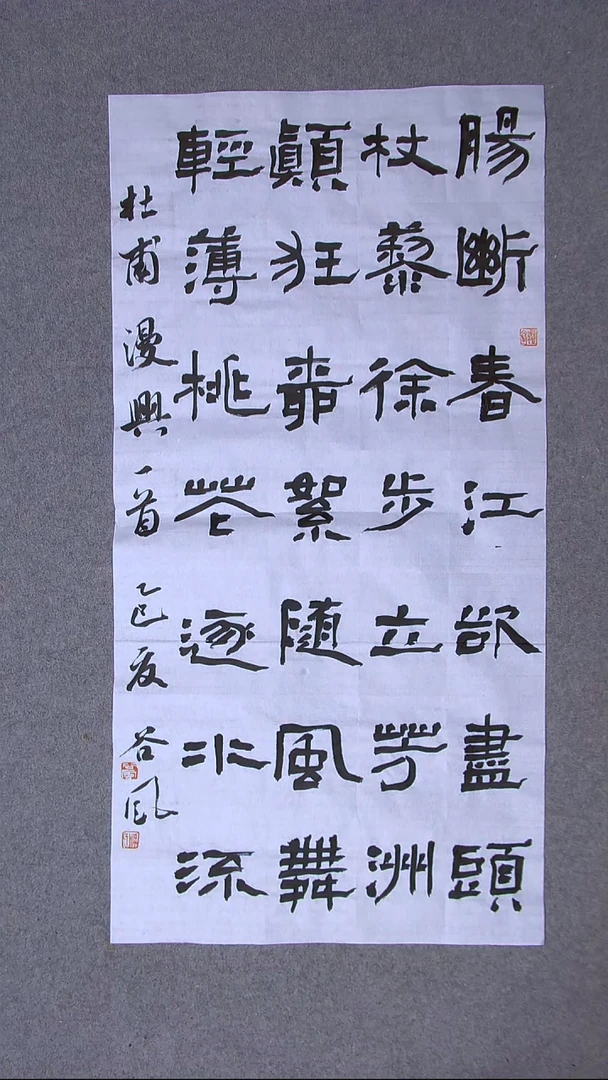 腸斷春江欲盡頭
杖藜徐步立芳洲
顛狂柳絮隨風舞
輕薄桃花逐水流
杜甫漫興一首 乙巳夏 谷風